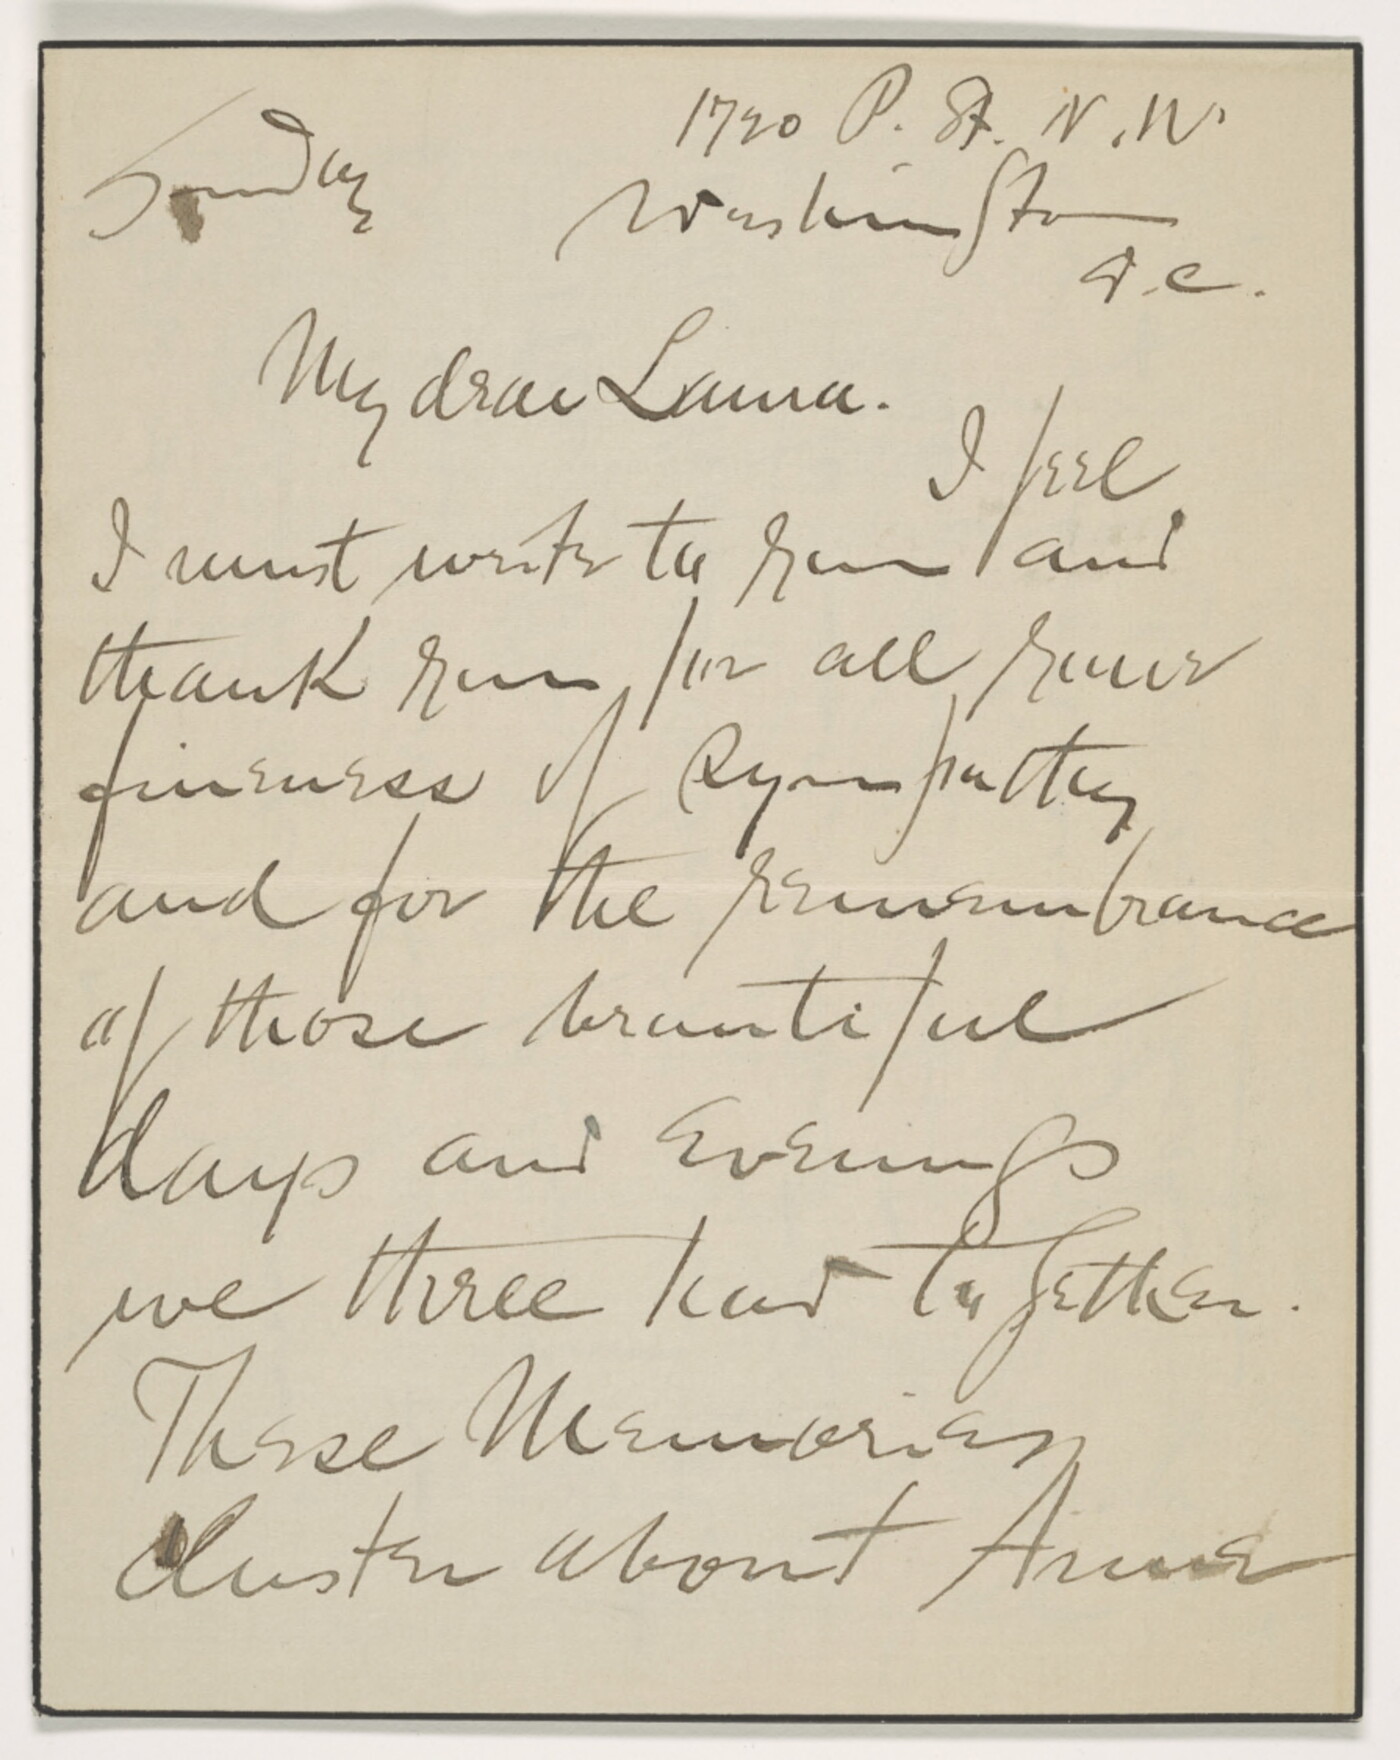 1720 P. St. N.W.
Sunday
Washington
D.C.
My dear Laura.
I feel
I must write to you and
thank you for all your
fineness of sympathy
and for the remembrance
of those beautiful
days and evenings
we three had together.
These Memories
cluster about Anne